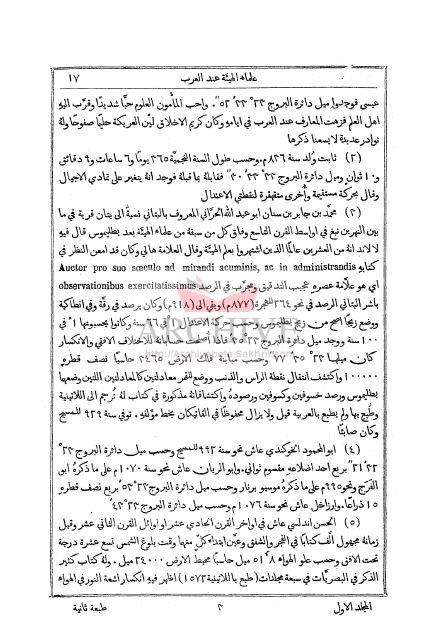 علماء الهيئة عند العرب ١٧
عيسى فوجدوا ميل دائرة البروج ٢٣° ٣٣′ ٥٢″. واحب المأمون العلوم حبًّا شديدًا وقرّب اليهِ
اهل العلم فزهت المعارف عند العرب في ايامهِ وكان كريم الاخلاق ليّن العريكة حليمًا صفوحًا ولهُ
نوادر عديدة لا يسعنا ذكرها
(٢) ثابت وُلد سنة ٨٣٦م. وحسب طول السنة النجمية ٣٦٥ يومًا و٦ ساعات و٩ دقائق
و١٠ ثوانٍ وميل دائرة البروج ٢٣° ٣٣′ ٣٠″ فقابلهُ بما قبلهُ فوجد انهُ يتغير على تمادي الاجيال
وقال بحركة مستقيمة واخرى متقهقرة لنقطتي الاعتدال
(٣) محمد بن جابر بن سنان ابو عبد الله الحرّاني المعروف بالبتاني نسبةً الى بتان قرية في ما
بين النهرين نبغ في اواسط القرن التاسع وفاق كل من سبقهُ من علماء الهيئة بعد بطليموس قال فيهِ
لالاند انهُ من العشرين عالمًا الذين اشتهروا بعلم الهيئة وقال العلامة هالي وكان قد امعن النظر في
كتابهِ Auctor pro suo sœculo ad mirandi acuminis, ac in administrandis
observationibus exercitatissimus اي هو علّامة عصرهِ عجيب التدقيق ومجرّب في الرصد
باشر البتاني الرصد في نحو ٢٦٤ للهجرة (٨٧٧م) وبقي الى (٩١٨م) وكان يرصد في رقة وفي انطاكية
ووضع زيجًا اصح من زيج بطليموس وحسب حركة الاعتدال ١° في ٦٦ سنة وكانوا يحسبونها ١° في
١٠٠ سنة ووجد ميل دائرة البروج ٢٣° ٣٥′ فاذا أُصلح حسابهُ للاختلاف الافقي والانكسار
كان ميلها وحسب مباينة فلك الارض حاسبًا نصف قطرهِ
١٠٠٠٠٠ واكتشف انتقال نقطة الراس والذنب ووضع للقمر معادلتين كالمعادلتين اللتين وضعها
بطليموس ورصد خسوفين وكسوفين ورصودهُ واكتشافاتهُ مذكورة في كتاب لهُ تُرجم الى اللاتينية
وطُبع بها ولم يطبع بالعربية قبل ولا يزال محفوظًا في الفاتيكان بخط مؤلفهِ. توفي سنة ٩٢٩ للمسيح
وكان صابئًا
(٤) ابو المحمود الخوكندي عاش نحو سنة ٩٩٢ للمسيح وحسب ميل دائرة البروج ٢٣°
٣٢′ ٢١″ بربع احد اضلاعهِ مقسوم ثواني. وابو الريان عاش نحو سنة ١٠٧٠م على ما ذكرهُ ابو
الفرج ونحو ٩٩٥م على ما ذكرهُ موسيو برنار وحسب ميل دائرة البروج بربع نصف قطرهِ
١٥ ذراعًا. وارزاخل عاش نحو سنة ١٠٧٦م وحسب ميل دائرة البروج
(٥) الحسن اندلسي عاش في اواخر القرن الحادي عشر او اوائل القرن الثاني عشر وقيل
زمانهُ مجهول ألّف كتابًا في الفجر والشفق وعيّن ابتداء كلٍّ منها وقت بلوغ الشمس تسع عشرة درجة
تحت الافق وحسب علو الهواء ميل حاسبًا محيط الارض ٢٤٠٠٠ ميل. ولهُ كتاب كثير
الذكر في البصريات في سبعة مجلدات (طبع باللاتينية ١٥٧٢) اظهر فيهِ انكسار اشعة النور في الهواء
المجلد الاول ٢ طبعة ثانية
ARCHIVE